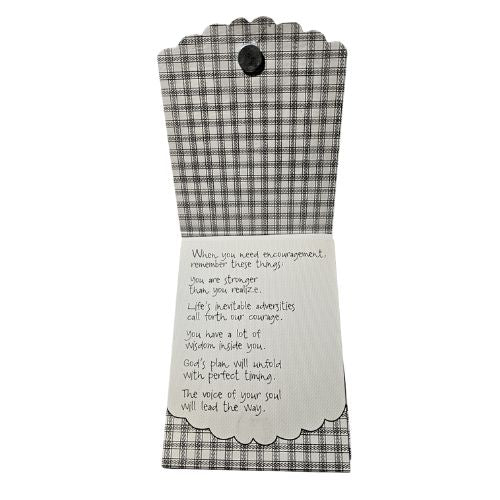 When you need encouragement,
remember these things:
you are stronger
than you realize.
Life's inevitable adversities
call forth our courage.
you have a lot of
wisdom inside you.
God's plan will unfold
with perfect timing.
The voice of your soul
will lead the way.